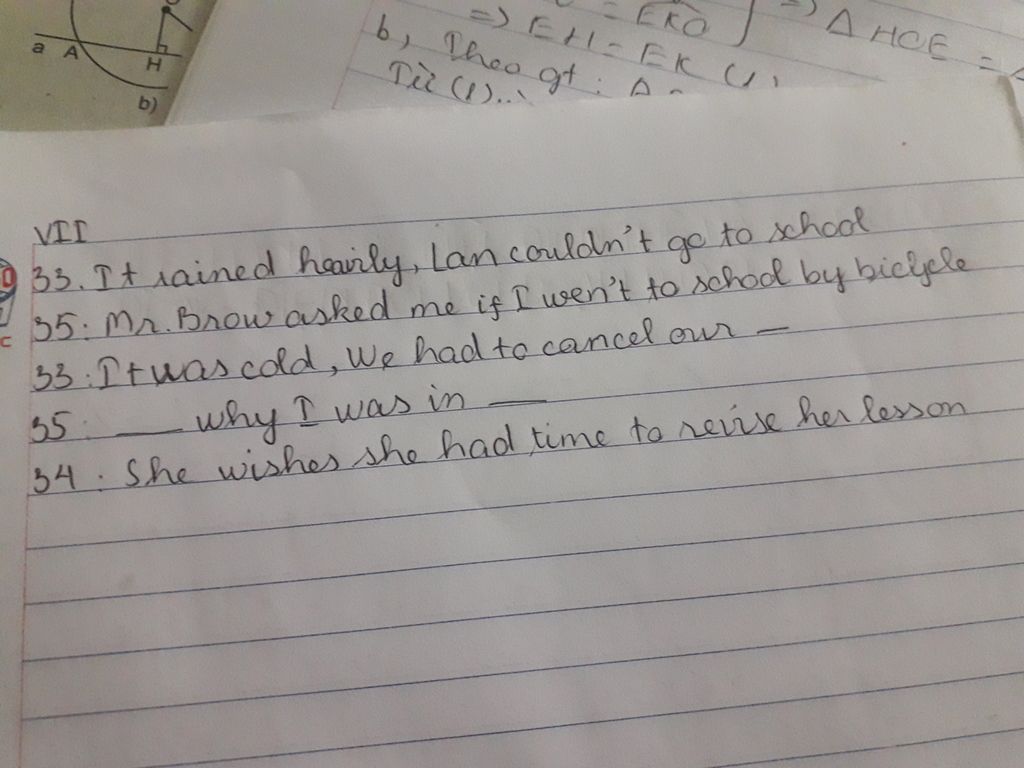 = EKO
=> EH = EK (1)
=> Δ HOE =
b, Theo gt:
Từ (1)...
a A H
b)
VII
33. It rained heavily, Lan couldn't go to school
35: Mr. Brow asked me if I wen't to school by biclycle
33: It was cold, We had to cancel our —
35: __ why I was in __
34: She wishes she had time to revise her lesson